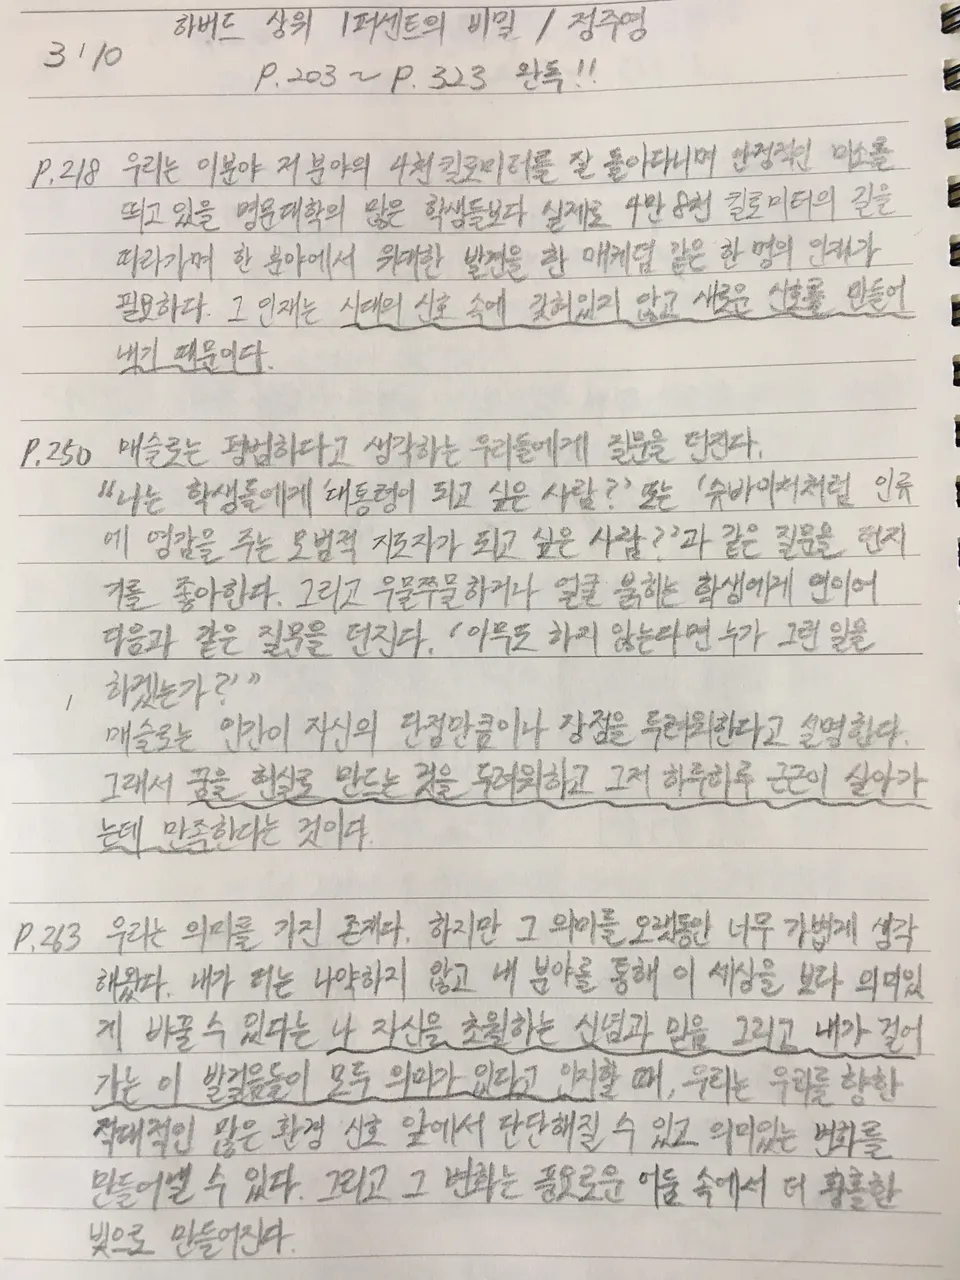 하버드 상위 1퍼센트의 비밀 / 정주영
3/10
P.203 ~ P.323 완독!!
P.218 우리는 이분야 저 분야의 4천킬로미터를 잘 돌아다니며 안정적인 미소를
띄고 있을 명문대학의 많은 학생들보다 실제로 4만 8천 킬로미터의 길을
따라가며 한 분야에서 위대한 발견을 한 매케덤 같은 한 명의 인재가
필요하다. 그 인재는 시대의 신호 속에 갖혀있지 않고 새로운 신호를 만들어
내기 때문이다.
P.250 매슬로는 평범하다고 생각하는 우리들에게 질문을 던진다.
"나는 학생들에게 '대통령이 되고 싶은 사람?' 또는 '슈바이처처럼 인류
에 영감을 주는 모범적 지도자가 되고 싶은 사람?'과 같은 질문을 던지
기를 좋아한다. 그리고 우물쭈물하거나 얼굴 붉히는 학생에게 연이어
다음과 같은 질문을 던진다. '아무도 하지 않는다면 누가 그런 일을
하겠는가?'"
매슬로는 인간이 자신의 단점만큼이나 장점을 두려워한다고 설명한다.
그래서 꿈을 현실로 만드는 것을 두려워하고 그저 하루하루 근근이 살아가
는데 만족한다는 것이다.
P.263 우리는 의미를 가진 존재다. 하지만 그 의미를 오랫동안 너무 가볍게 생각
해왔다. 내가 더는 나약하지 않고 내 분야를 통해 이 세상을 보다 의미있
게 바꿀 수 있다는 나 자신을 초월하는 신념과 믿음 그리고 내가 걸어
가는 이 발걸음들이 모두 의미가 있다고 인지할 때, 우리는 우리를 향한
적대적인 많은 환경 신호 앞에서 단단해질 수 있고 의미있는 변화를
만들어낼 수 있다. 그리고 그 변화는 풍요로운 어둠 속에서 더 황홀한
빛으로 만들어진다.